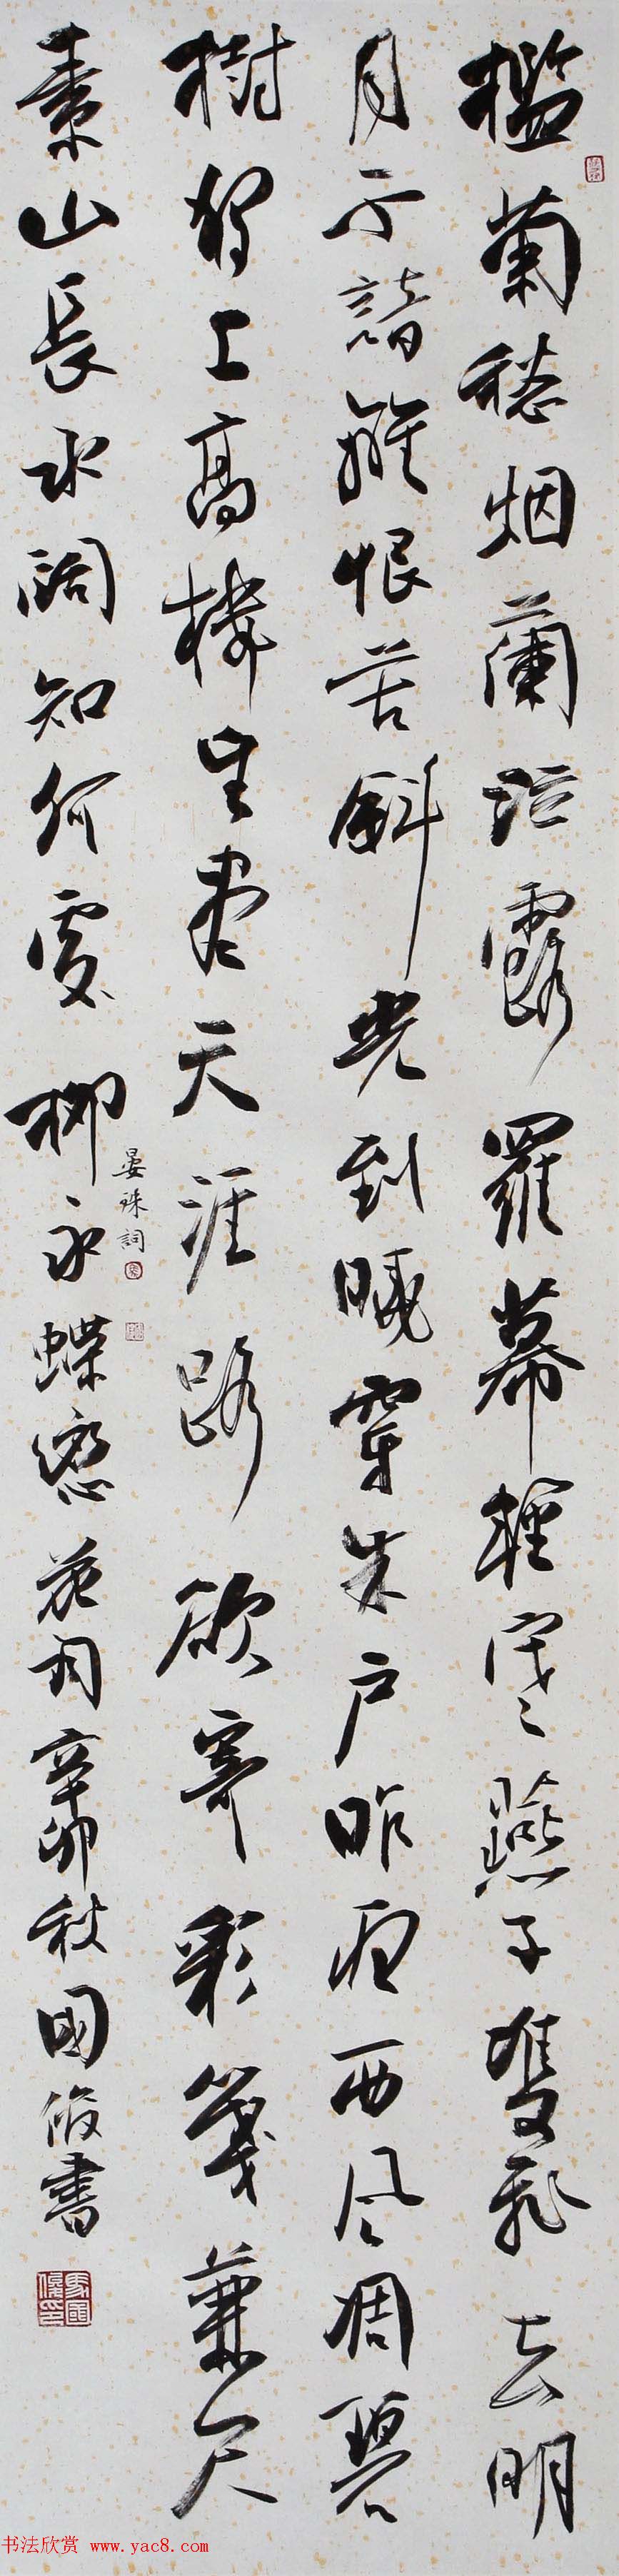 檻菊愁烟蘭泣露羅幕輕寒燕子雙飛去明
月不諳離恨苦斜光到曉穿朱户昨夜西風凋碧
樹獨上高樓望盡天涯路欲寄彩箋兼尺
素山長水闊知何處柳永蝶戀花詞辛卯秋國俊書
晏殊詞
馬國俊印
书法欣赏 www.yac8.com